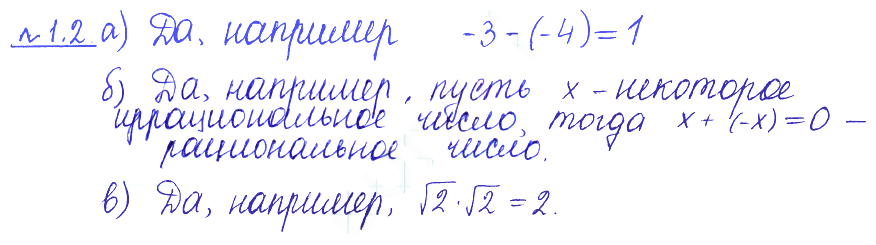 №1.2. а) Да, например -3-(-4)=1
б) Да, например, пусть x – некоторое
иррациональное число, тогда x+(-x)=0 –
рациональное число.
в) Да, например, √2·√2=2.